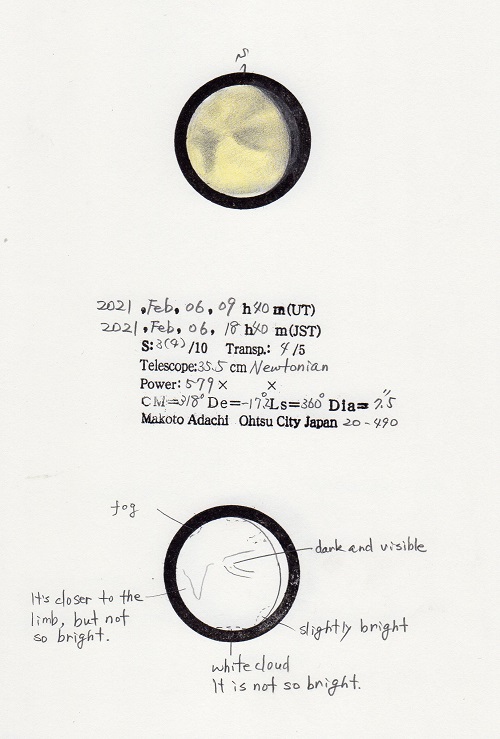 N
2021 ,Feb, 06, 09 h 40 m(UT)
2021 ,Feb, 06, 18 h 40 m(JST)
S: 3(4) /10 Transp.: 4 /5
Telescope: 35.5 cm Newtonian
Power: 579 × ×
CM=318° De=-17.2° Ls=360° Dia= 7.5"
Makoto Adachi Ohtsu City Japan 20-490
fog
dark and visible
It's closer to the
limb, but not
so bright.
slightly bright
white cloud
It is not so bright.